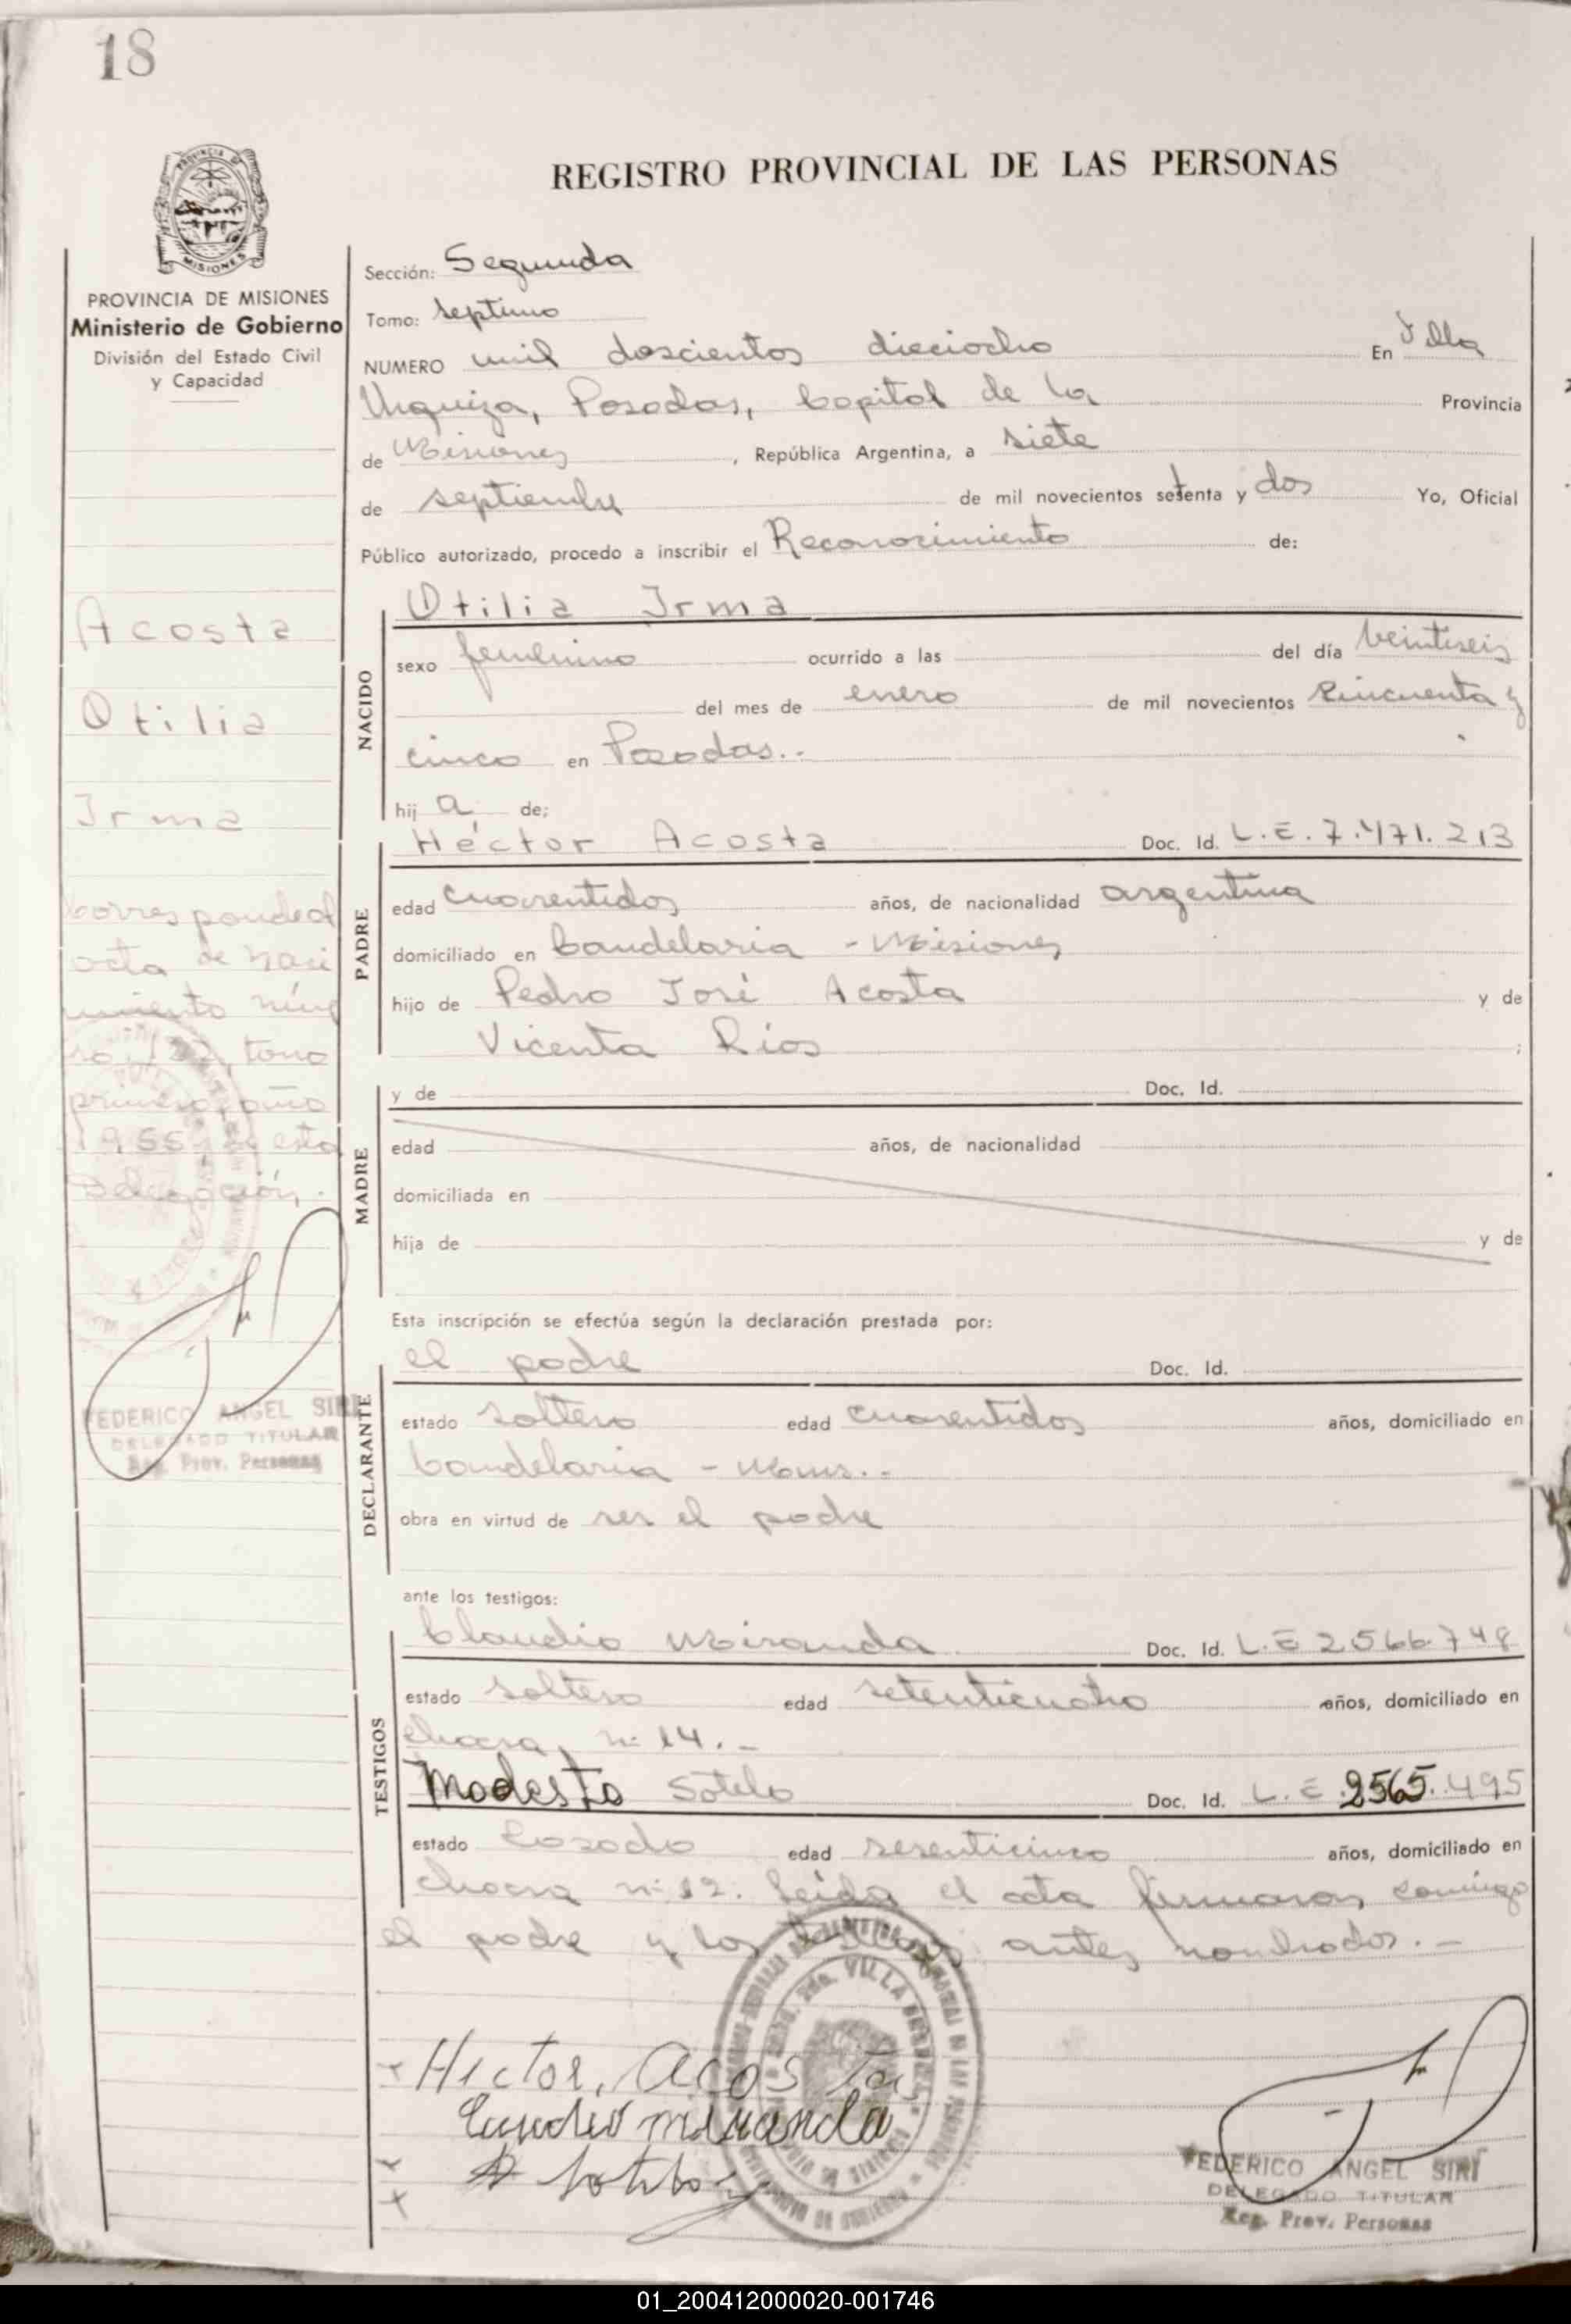 18
REGISTRO PROVINCIAL DE LAS PERSONAS
PROVINCIA DE MISIONES
Ministerio de Gobierno
División del Estado Civil
y Capacidad
Acosta
Otilia
Irma
Corresponde al
acta de naci
miento núme
ro 122, tomo
primero, año
1955, de esta
Delegación.
FEDERICO ANGEL SIRI
DELEGADO TITULAR
Reg. Prov. Personas
Sección: Segunda
Tomo: septimo
NUMERO mil doscientos dieciocho En Villa
Urquiza, Posadas, Capital de la Provincia
de Misiones, República Argentina, a siete
de septiembre de mil novecientos setenta y dos Yo, Oficial
Público autorizado, procedo a inscribir el Reconocimiento de:
NACIDO
Otilia Irma
sexo femenino ocurrido a las del día veintiseis
del mes de enero de mil novecientos cincuenta y
cinco en Posadas..
hij a de;
PADRE
Héctor Acosta Doc. Id. L.E. 7.471.213
edad cuarentidos años, de nacionalidad argentina
domiciliado en Candelaria - Misiones
hijo de Pedro José Acosta y de
Vicenta Ríos ;
MADRE
y de Doc. Id.
edad años, de nacionalidad
domiciliada en
hija de y de
Esta inscripción se efectúa según la declaración prestada por:
DECLARANTE
el padre Doc. Id.
estado soltero edad cuarentidos años, domiciliado en
Candelaria - Mnes..
obra en virtud de ser el padre
ante los testigos:
TESTIGOS
Claudio Miranda Doc. Id. L.E 2.566.748
estado soltero edad setenticuatro años, domiciliado en
chacra nº 14.-
Modesto Sotelo Doc. Id. L.E. 2565.495
estado Casado edad sesenticinco años, domiciliado en
chacra nº 12. Leída el acta firmaron conmigo
el padre y los testigos antes nombrados.-
Hector. Acosta
miranda
Sotelo
FEDERICO ANGEL SIRI
DELEGADO TITULAR
Reg. Prov. Personas
01_200412000020-001746